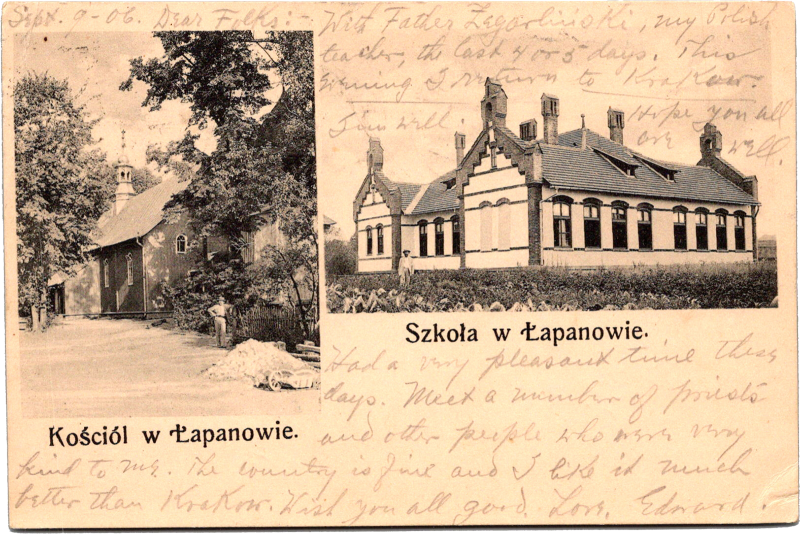 Sept. 9-06. Dear Folks:-
With Father Zegarliński, my Polish
teacher, the last 4 or 5 days. This
evening I return to Krakow.
I am well. Hope you all
are well.
Szkoła w Łapanowie.
Had a very pleasant time these
days. Meet a number of priests
Kościół w Łapanowie.
and other people who were very
kind to me. The country is fine and I like it much
better than Krakow. Wish you all good. Love, Edward.